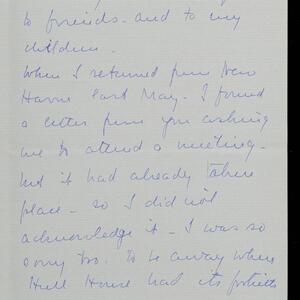 to friends - and to my
children.
When I returned from New
Haven last May - I found
a letter from you asking
me to attend a meeting -
but it had already taken
place - so I did not
acknowledge it - I was so
sorry too. To be away when
Hull House had its fortieth